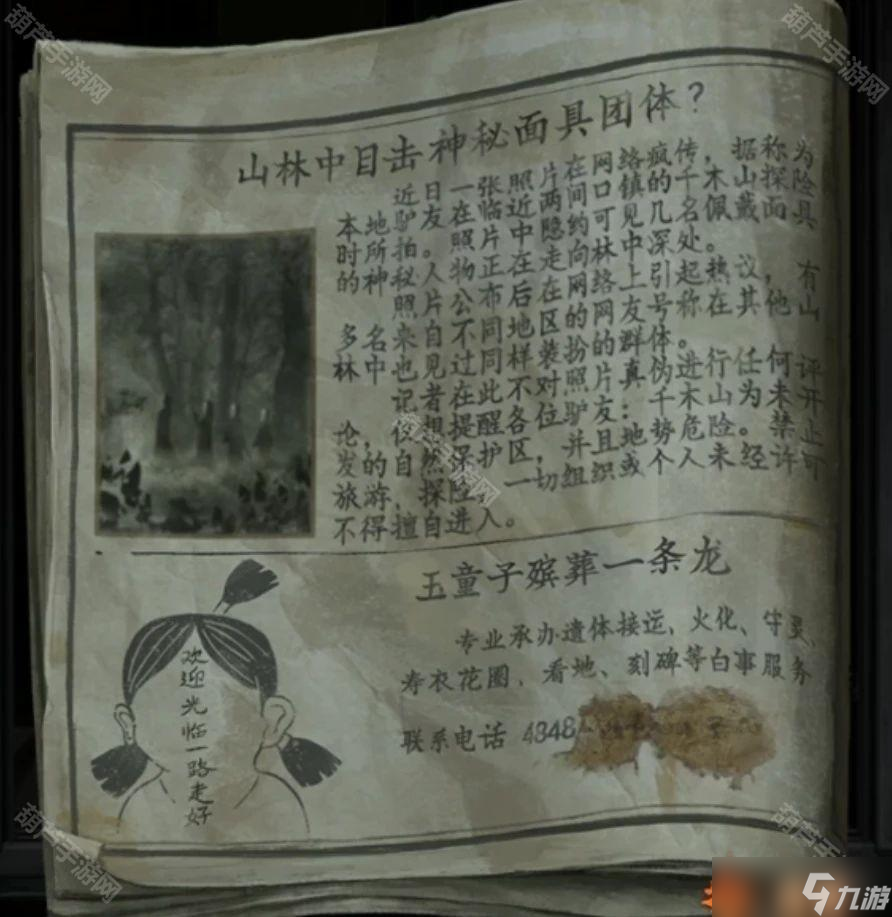 山林中目击神秘面具团体？
近日一张照片在网络疯传，据称为
本地驴友在临近两间口镇的千木山探险
时所拍。照片中隐约可见几名佩戴面具
的神秘人物正在走向林中深处。
照片公布后在网络上引起热议，有
多名来自不同地区的网友号称在其他山
林中也见过同样装扮的群体。
记者在此不对照片真伪进行任何评
论，仅想提醒各位驴友：千木山为未开
发的自然保护区，并且地势危险。禁止
旅游，探险，一切组织或个人未经许可
不得擅自进入。
玉童子殡葬一条龙
专业承办遗体接运、火化、守灵、
寿衣花圈、看地、刻碑等白事服务
联系电话 4848
欢迎光临一路走好
葫芦手游网
九游